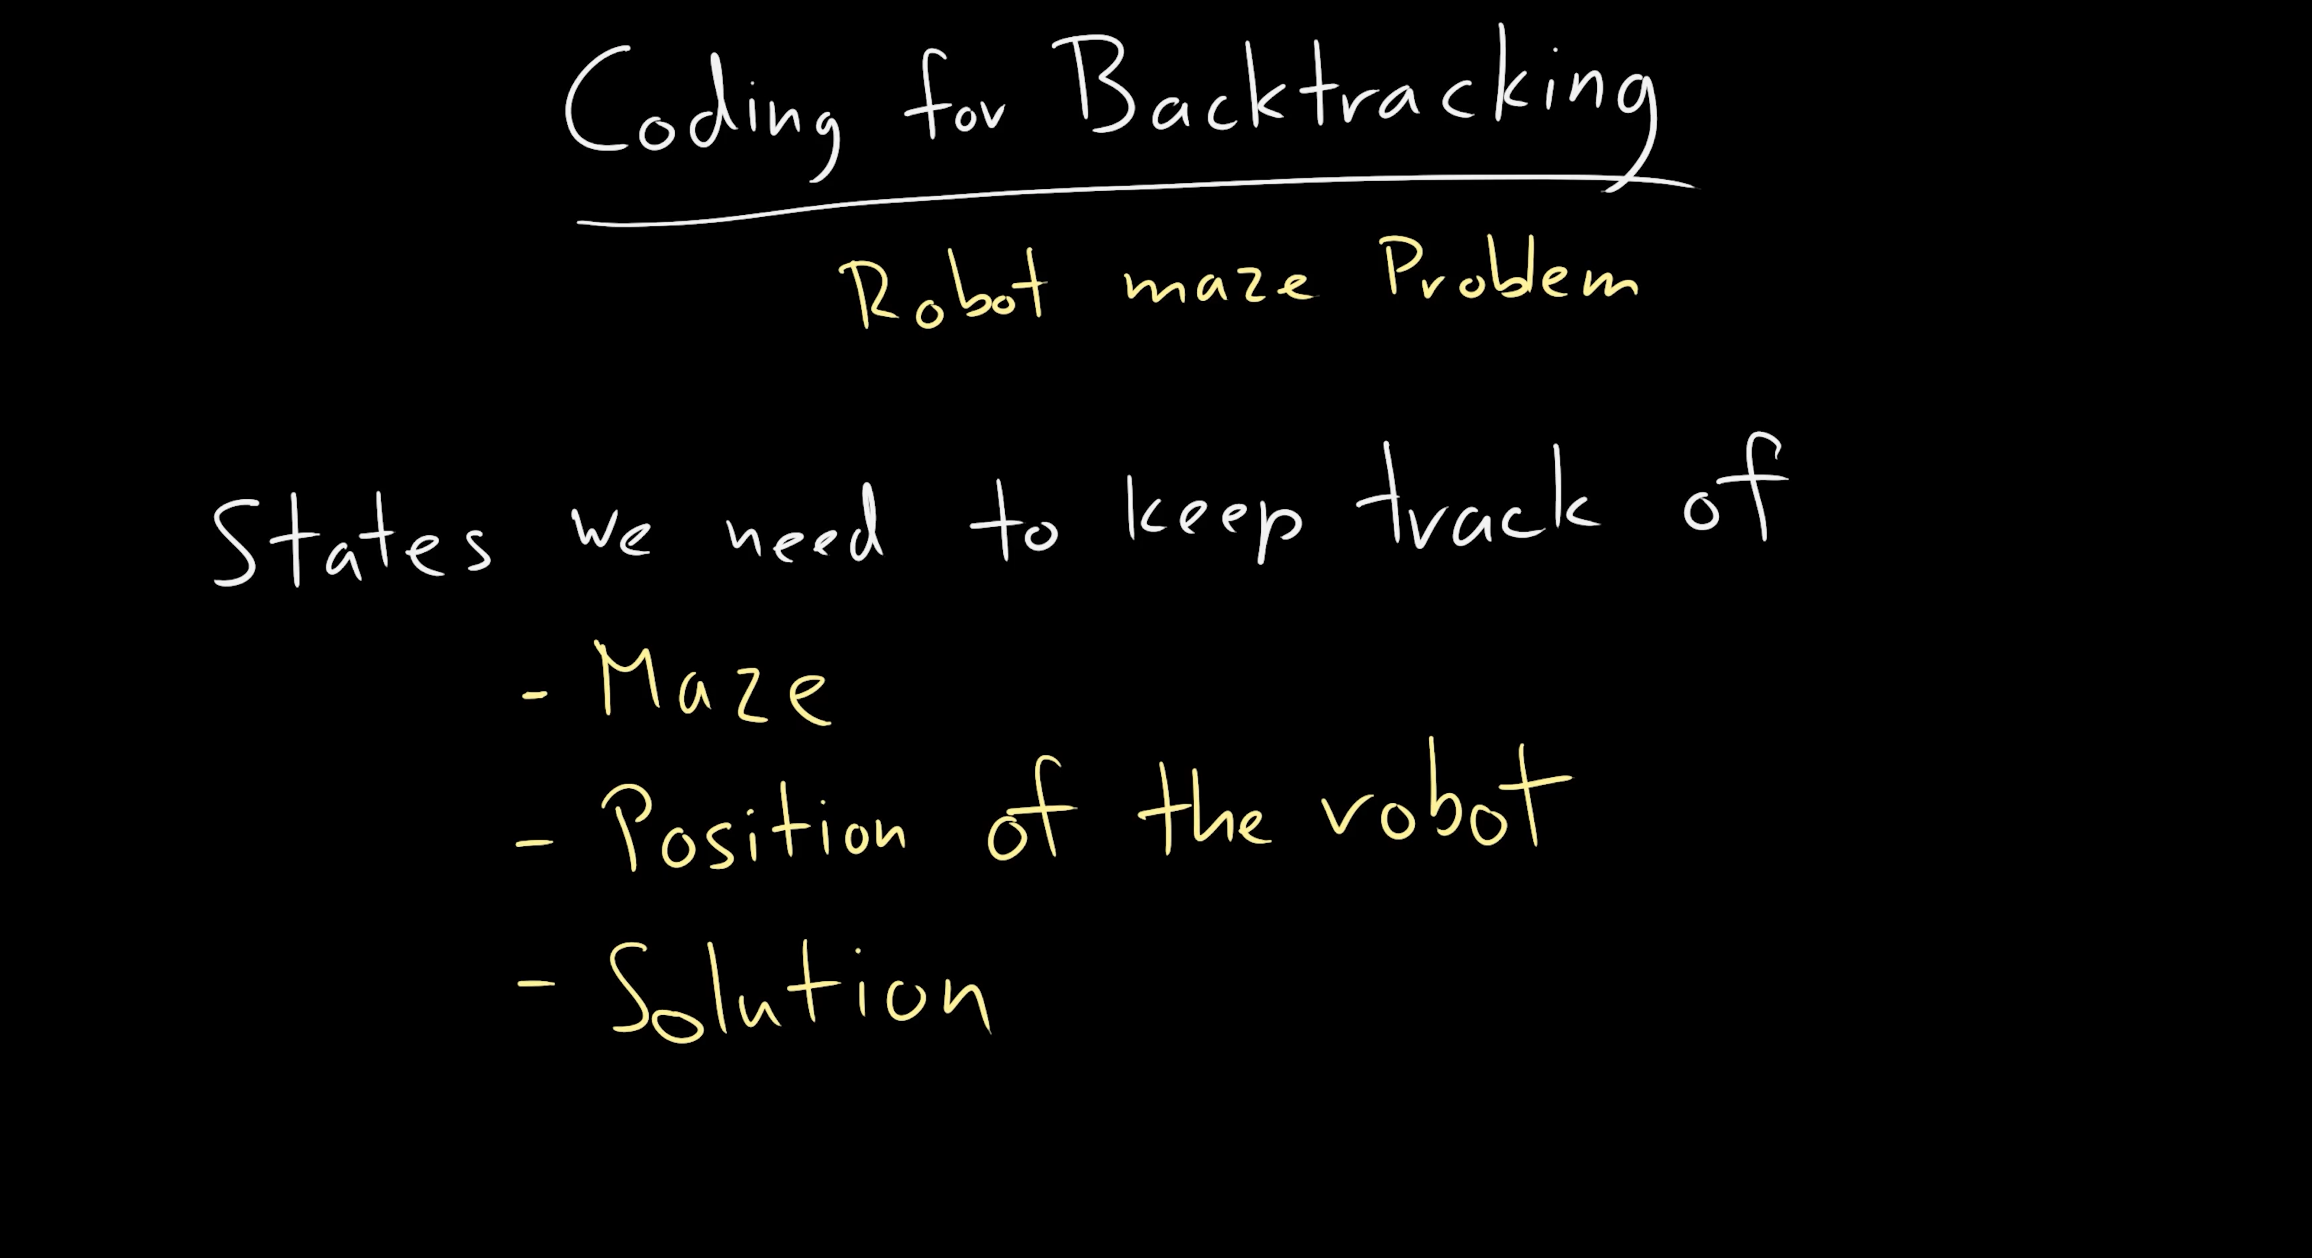 Coding for Backtracking
Robot maze Problem
States we need to keep track of
- Maze
- Position of the robot
- Solution